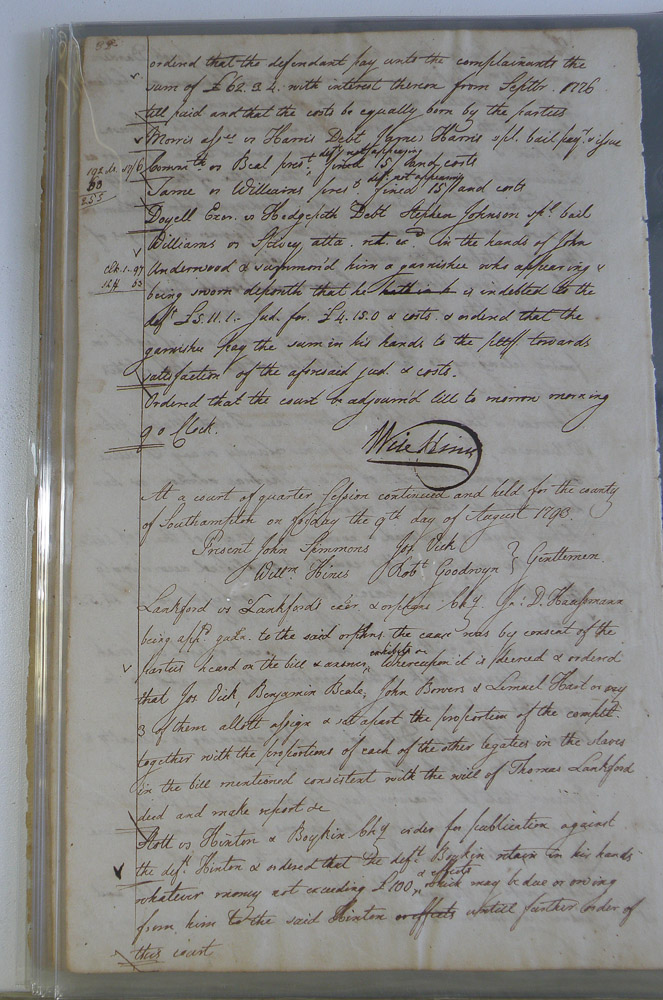 ordered that the defendant pay unto the complainants the
sum of £62.3.4. with interest thereon from Septbr. 1776
till paid and that the costs be equally born by the parties
Morris assee vs Harris Debt James Harris spl. bail pay.t & issue
defts not appearing
Commth vs Beal prest. fined 15/ and costs
deft. not appearing
Same vs Williams prest fined 15/ and costs
Doyell Exor. vs Hodgepath Debt Stephen Johnson spl. bail
Williams vs Spivey atta. ret. exd. in the hands of John
Underwood & summon'd him a garnishee who appearing &
being sworn deposeth that he is indebted to the
deft £5.11.1. Jud. for £4.15.0 & costs & ordered that the
garnishee pay the sum in his hands to the pltff towards
satisfaction of the aforesaid jud. & costs.
Ordered that the court be adjourn'd till to morrow morning
9 o Clock.
Wm Hines
At a court of quarter session continued and held for the county
of Southampton on friday the 9th day of August 1793.
Present John Simmons Jos. Vick
Willm. Hines Robt Goodwyn } Gentlemen
Lankford vs Lankford's exor. & orphans Chy. Jn: D. Haussmann
being appd. guan. to the said orphans the cause was by consent of the
exhibits on
parties heard on the bill & answer Whereupon it is decreed & ordered
that Jos. Vick Benjamin Beale, John Bowers & Lemuel Hart or any
3 of them allott assign & set apart the proportion of the complt.
together with the proportions of each of the other legatees in the slaves
in the bill mentioned consistent with the will of Thomas Lankford
died and make report &c
Stott vs Hinton & Boykin Chy order for publication against
the deft. Hinton & ordered that the deft. Boykin retain in his hands
& effects
whatever money not exceeding £100, which may be due or owing
from him to the said Hinton or effects untill further order of
this court